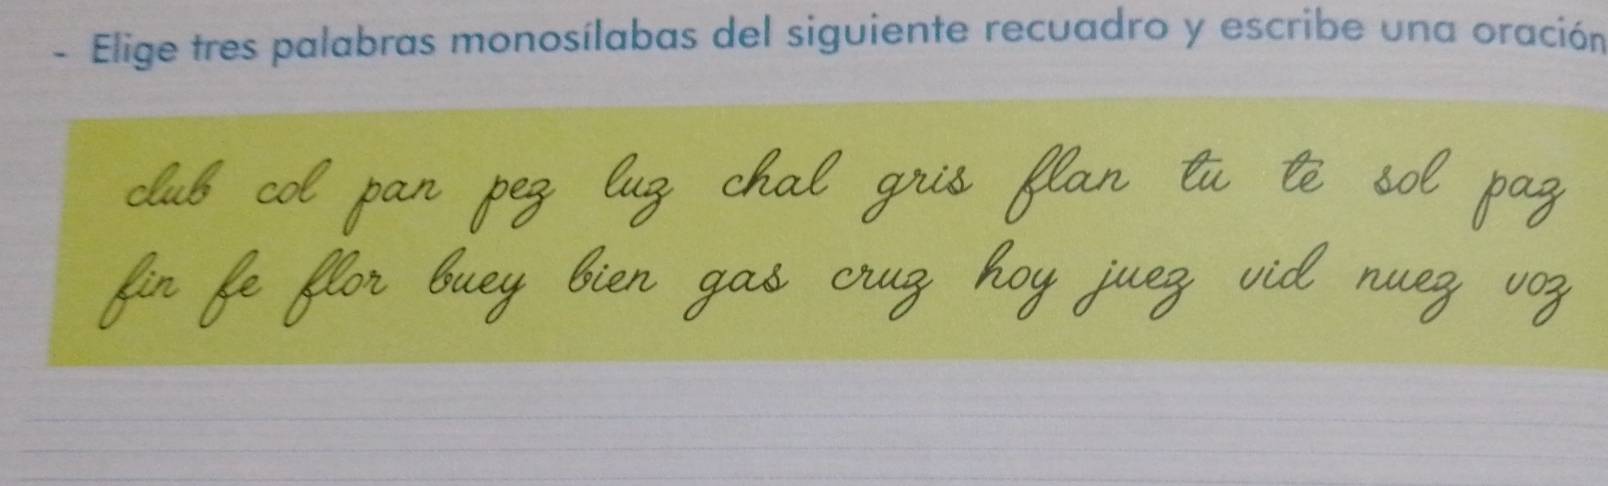 - Elige tres palabras monosílabas del siguiente recuadro y escribe una oración
club col pan pez luz chal gris flan tu té sol paz
fin fe flor buey bien gas cruz hoy juez vid nuez voz